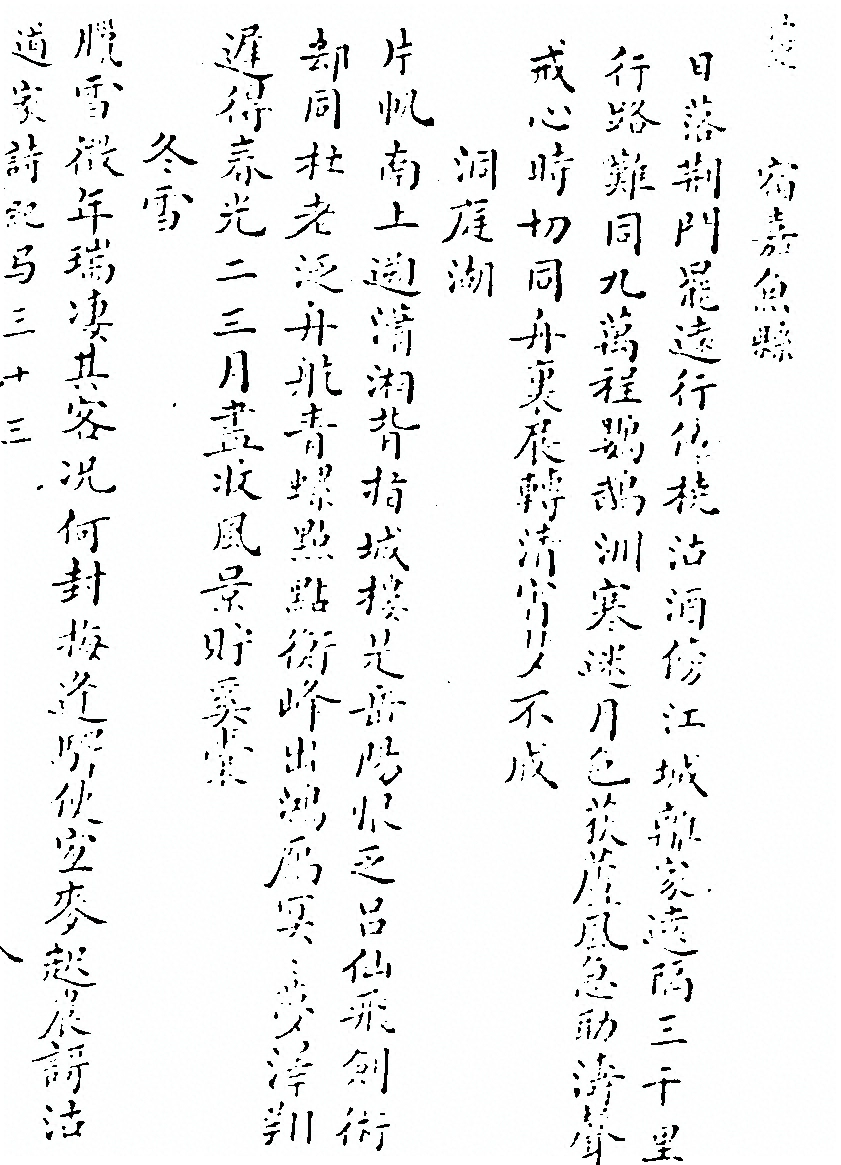 宿嘉魚縣
日落荆門罷遠行依橈沽酒傍江城離家遠隔三千里
行路難同九萬程鸚鵡洲寒迷月色荻蘆風急助濤聲
戒心時切同舟裏展轉清宵夢不成
洞庭湖
片帆南上遡瀟湘背指城樓是岳陽恨乏呂仙飛劍術
却同杜老泛舟航青螺點點衡峰出鴻雁冥冥夢澤翔
遲得春光二三月盡收風景貯奚囊
冬雪
臘雪徵年瑞凄其客况何封梅逆驛使宜麥起農謌沽
道家詩記馬三十三